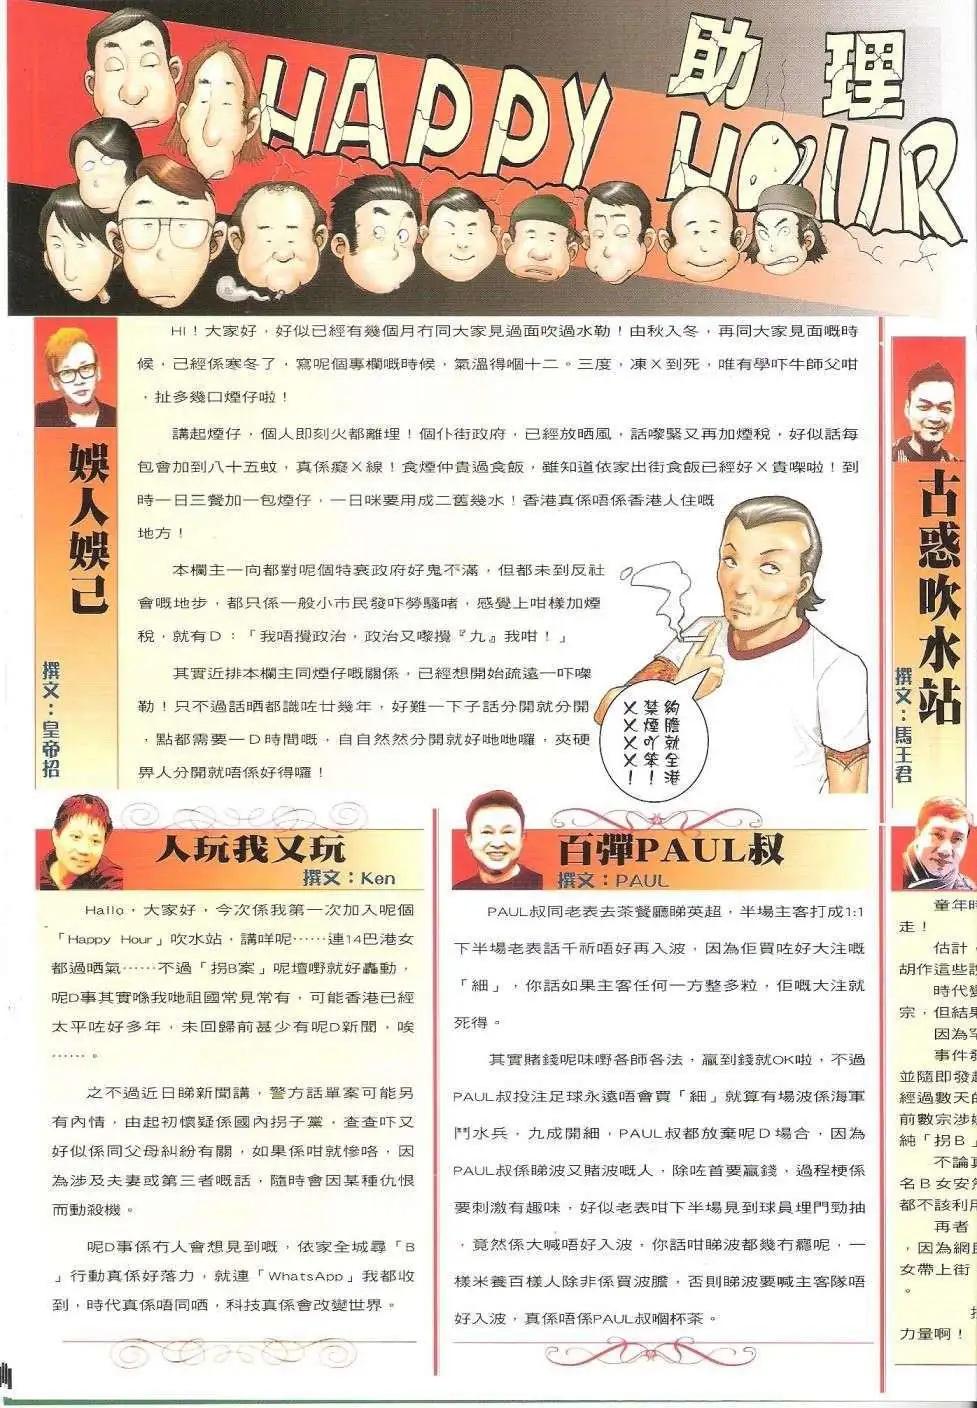 助理
HAPPY HOUR
娛人娛己
撰文：皇帝招
HI！大家好，好似已經有幾個月冇同大家見過面吹過水勒！由秋入冬，再同大家見面嘅時
候，己經係寒冬了，寫呢個專欄嘅時候，氣溫得嗰十二。三度，凍X到死，唯有學吓牛師父咁
，扯多幾口煙仔啦！
講起煙仔，個人即刻火都離埋！個仆街政府，已經放晒風，話嚟緊又再加煙稅，好似話每
包會加到八十五蚊，真係癡X線！食煙仲貴過食飯，雖知道依家出街食飯已經好X貴㗎啦！到
時一日三餐加一包煙仔，一日咪要用成二舊幾水！香港真係唔係香港人住嘅
地方！
本欄主一向都對呢個特衰政府好鬼不滿，但都未到反社
會嘅地步，都只係一般小市民發吓勞騷啫，感覺上咁樣加煙
稅，就有D：「我唔攪政治，政治又嚟攪『九』我咁！」
其實近排本欄主同煙仔嘅關係，已經想開始疏遠一吓㗎
勒！只不過話晒都識咗廿幾年，好難一下子話分開就分開
，點都需要一D時間嘅，自自然然分開就好哋哋囉，夾硬
畀人分開就唔係好得囉！
夠膽就全港
禁煙吖笨！
XXXX！
古惑吹水站
撰文：馬王君
人玩我又玩
撰文：Ken
Hallo，大家好，今次係我第一次加入呢個
「Happy Hour」吹水站，講咩呢……連14巴港女
都過晒氣……不過「拐B案」呢壇嘢就好轟動，
呢D事其實喺我哋祖國常見常有，可能香港已經
太平咗好多年，未回歸前甚少有呢D新聞，唉
……。
之不過近日睇新聞講，警方話單案可能另
有內情，由起初懷疑係國內拐子黨，查查吓又
好似係同父母糾紛有關，如果係咁就慘咯，因
為涉及夫妻或第三者嘅話，隨時會因某種仇恨
而動殺機。
呢D事係冇人會想見到嘅，依家全城尋「B
」行動真係好落力，就連「WhatsApp」我都收
到，時代真係唔同哂，科技真係會改變世界。
百彈PAUL叔
撰文：PAUL
PAUL叔同老表去茶餐廳睇英超，半場主客打成1:1
下半場老表話千祈唔好再入波，因為佢買咗好大注嘅
「細」，你話如果主客任何一方整多粒，佢嘅大注就
死得。
其實賭錢呢味嘢各師各法，贏到錢就OK啦，不過
PAUL叔投注足球永遠唔會買「細」就算有場波係海軍
鬥水兵，九成開細，PAUL叔都放棄呢D場合，因為
PAUL叔係睇波又賭波嘅人，除咗首要贏錢，過程梗係
要刺激有趣味，好似老表咁下半場見到球員埋門勁抽
，竟然係大喊唔好入波，你話咁睇波都幾冇癮呢，一
樣米養百樣人除非係買波膽，否則睇波要喊主客隊唔
好入波，真係唔係PAUL叔嗰杯茶。
童年時
走！
估計，
胡作這些
時代變
宗，但結果
因為罕
事件發
並隨即發起
經過數天的
前數宗涉嫌
純「拐B」
不論真
名B女安然
都不該利用
再者
，因為網民
女帶上街
。
力量啊！